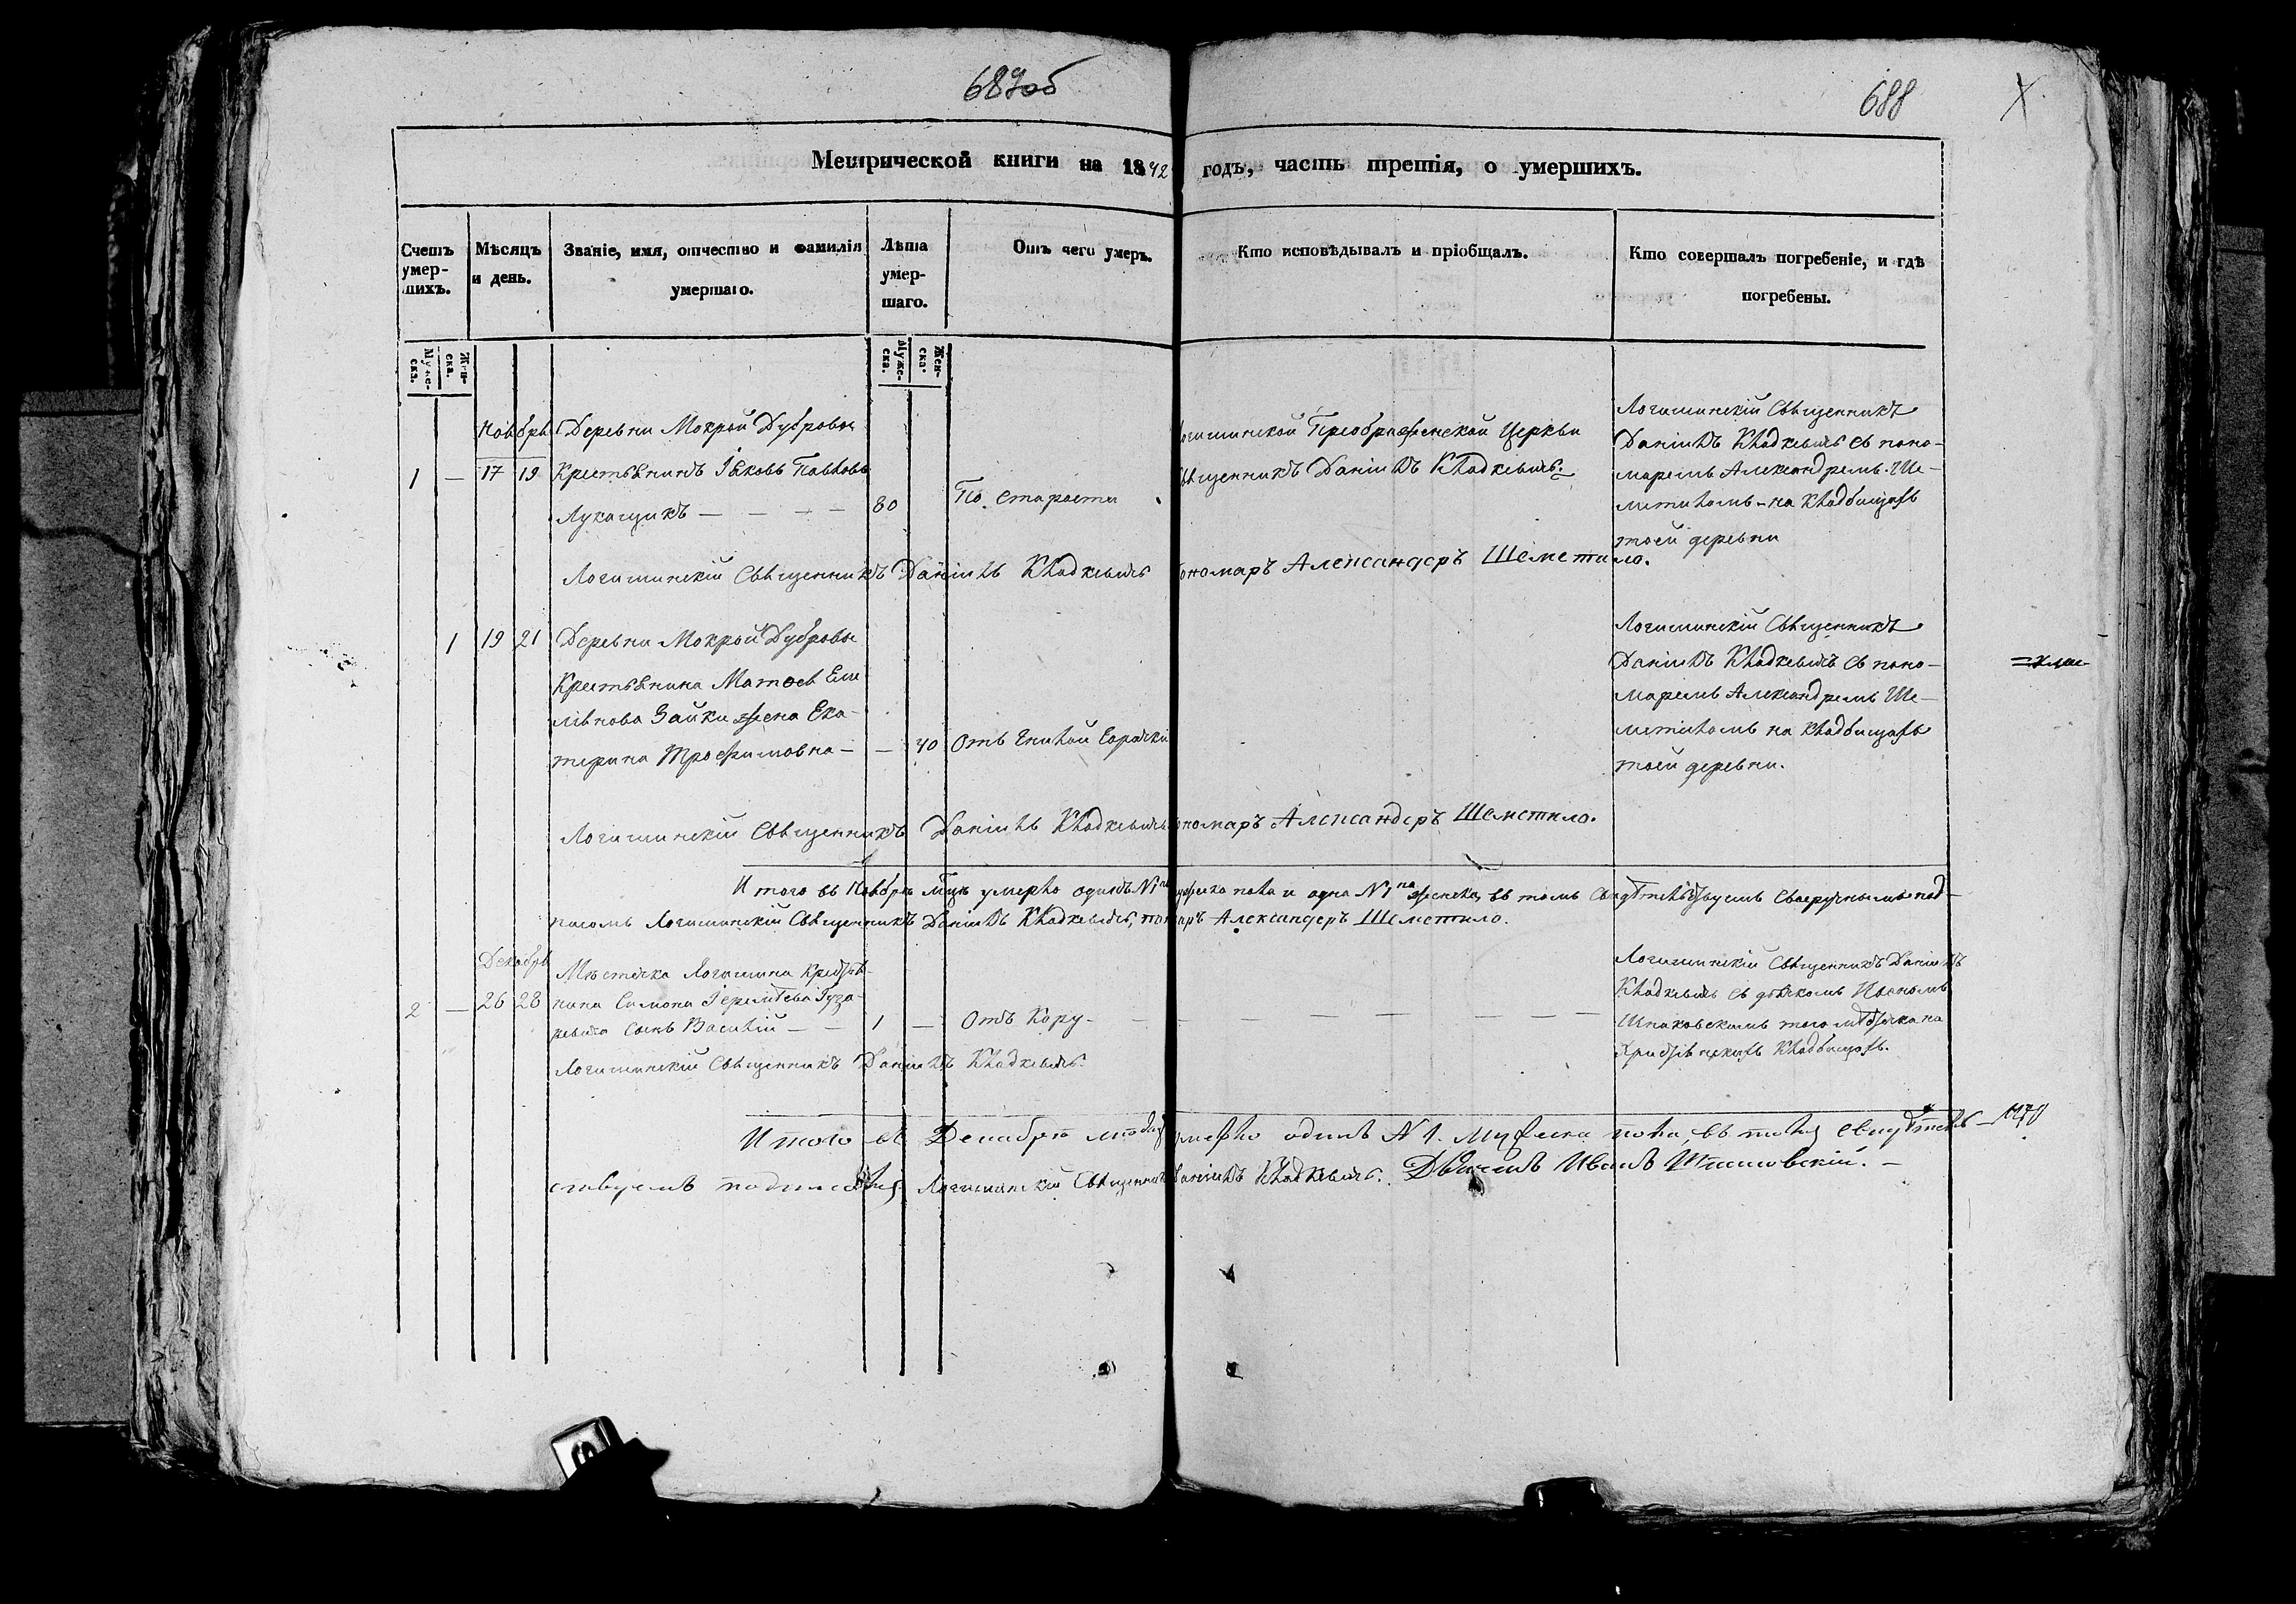 687об
688
X
Метрической книги на 1842 годъ, часть третія, о умершихъ.
Счетъ умер-шихъ.
Мѣсяцъ и день.
Званіе, имя, отчество и фамилія умершаго.
Лѣта умер-шаго.
Отъ чего умеръ.
Кто исповѣдывалъ и пріобщалъ.
Кто совершалъ погребеніе, и гдѣ погребены.
Муже-ска.
Жен-ска.
Муже-ска.
Жен-ска.
Ноябрь
1 — 17 19
Деревни Мокрой Дубровы
Крестьянинъ Іаковъ Павловъ
Лукащикъ — — — —
80
По старости
Логишинской Преображенской Церкви
Священникъ Даніилъ Кладкевичъ.
Логишинскій Священникъ
Даніилъ Кладкевичъ съ поно-
маремъ Александремъ Ше-
метиломъ — на кладбищѣ
тоей деревни
Логишинскій Священникъ Даніилъ Кладкевичъ Пономаръ Александеръ Шеметило.
1 19 21
Деревни Мокрой Дубровы
Крестьянина Матвея Еме
ліянова Зайки жена Ека-
терина Трофимовна —
— 40
Отъ Гнилой Горячки
Логишинскій Священникъ
Даніилъ Кладкевичъ съ поно-
маремъ Александремъ Ше-
метиломъ на кладбищѣ
тоей деревни.
Логишинскій Священникъ Даніилъ Кладкевичъ Пономаръ Александеръ Шеметило.
Итого въ Ноябрѣ мцѣ умерло одинъ №1 мужеска пола и одна №1 женска, въ томъ свидѣтельствуемъ своеручнымъ под-
писомъ Логишинскій Священникъ Даніилъ Кладкевичъ, пономаръ Александеръ Шеметило.
Декабрь
2 — 26 28
Мѣстечка Логишина Крестья-
нина Симона Іеремѣева Гуза-
ревича сынъ Василій — —
1 —
Отъ Кору —
Логишинскій Священникъ Даніилъ
Кладкевичъ съ дьякомъ Иваномъ
Шпаковскимъ того мѣстечка на
Христіянскимъ Кладбищѣ.
Логишинскій Священникъ Даніилъ Кладкевичъ.
Итого въ Декабрѣ умерло одинъ №1. Мужеска пола, въ свидѣтель-
ствуемъ Логишинскій Священникъ Даніилъ Кладкевичъ. Дьячекъ Иванъ Шпаковскій. —